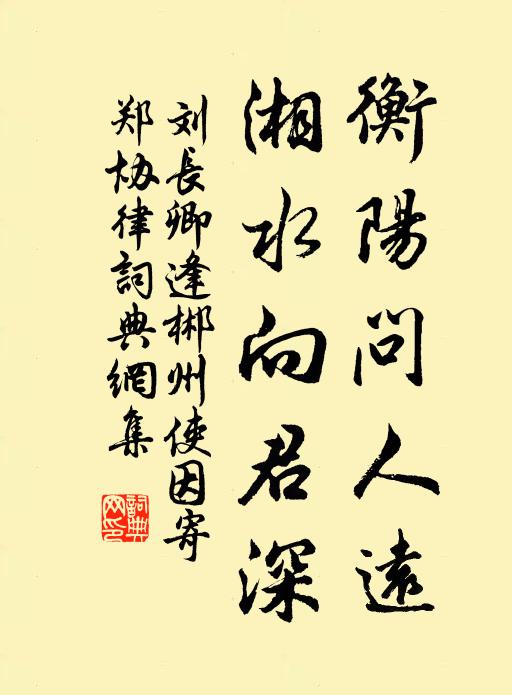 衡陽問人遠
湘水向君深
刘長卿逢郴州使因寄
郑协律詞典網集
詞典
网印